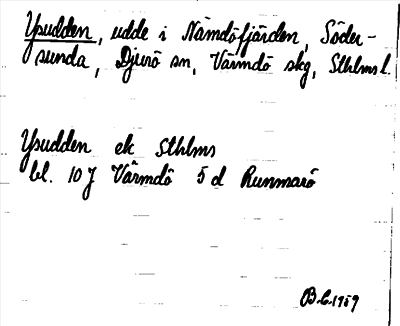 Ysudden, udde i Nämdöfjärden, Söder-
sunda, Djurö sn, Värmdö skg, Sthlms l.
Ysudden ek Sthlms
bl. 10 J Värmdö 5 d Runmarö
B.C. 1959